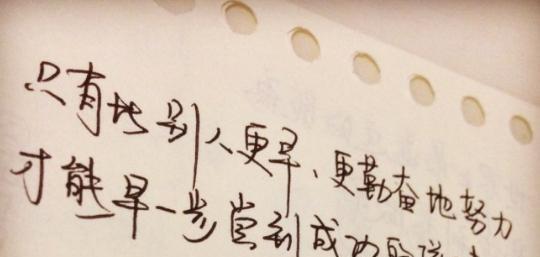 只有比别人更早、更勤奋地努力
才能早一步尝到成功的